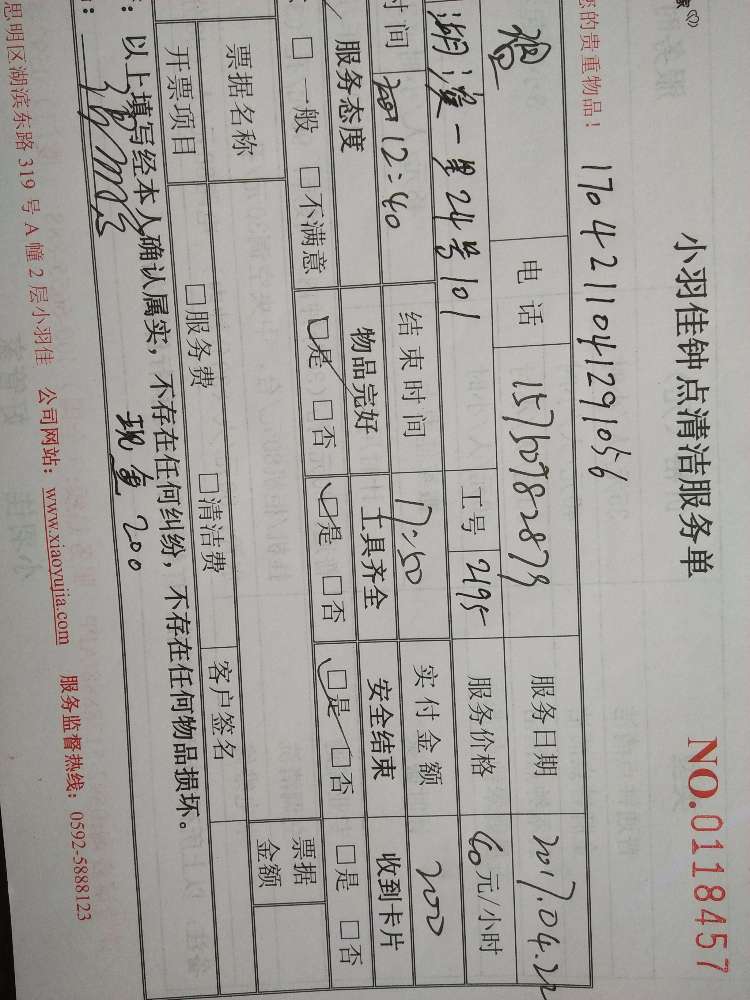 小羽佳钟点清洁服务单
NO.0118457
您的贵重物品！
1704211041291056
电话 15750982879 服务日期 2017.04.22
湖滨一里24号101 工号 2195 服务价格 40元/小时
时间 12:40 结束时间 17:50 实付金额 200
服务态度 物品完好 工具齐全 安全结束 收到卡片
□一般 □不满意 □是 □否 □是 □否 □是 □否 □是 □否
票据名称 票据金额
开票项目 □服务费 □清洁费 客户签名
：以上填写经本人确认属实，不存在任何纠纷，不存在任何物品损坏。
现金200
思明区湖滨东路319号A幢2层小羽佳 公司网站：www.xiaoyujia.com 服务监督热线：0592-5888123